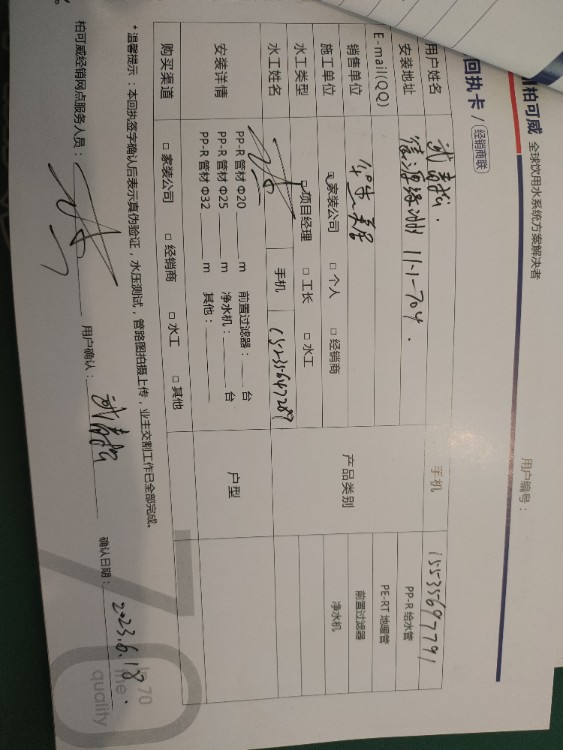 柏可威 全球饮用水系统方案解决者
回执卡 / 经销商联
用户编号：
用户姓名 手机 15535697791
安装地址 信源绿洲 11-1-704.
E-mail(QQ)
销售单位
施工单位 □家装公司 □个人 □经销商
水工类型 □项目经理 □工长 □水工
水工姓名 手机
产品类别
PP-R 给水管
PE-RT 地暖管
前置过滤器
净水机
安装详情
PP-R 管材 Φ20 ____ m 前置过滤器：____ 台
PP-R 管材 Φ25 ____ m 净水机：____ 台
PP-R 管材 Φ32 ____ m 其他：____
户型
购买渠道 □家装公司 □经销商 □水工 □其他
*温馨提示：本回执签字确认后表示真伪验证，水压测试，管路图拍摄上传，业主交割工作已全部完成。
柏可威经销网点服务人员： 用户确认： 确认日期：2023.6.18.
70
quality